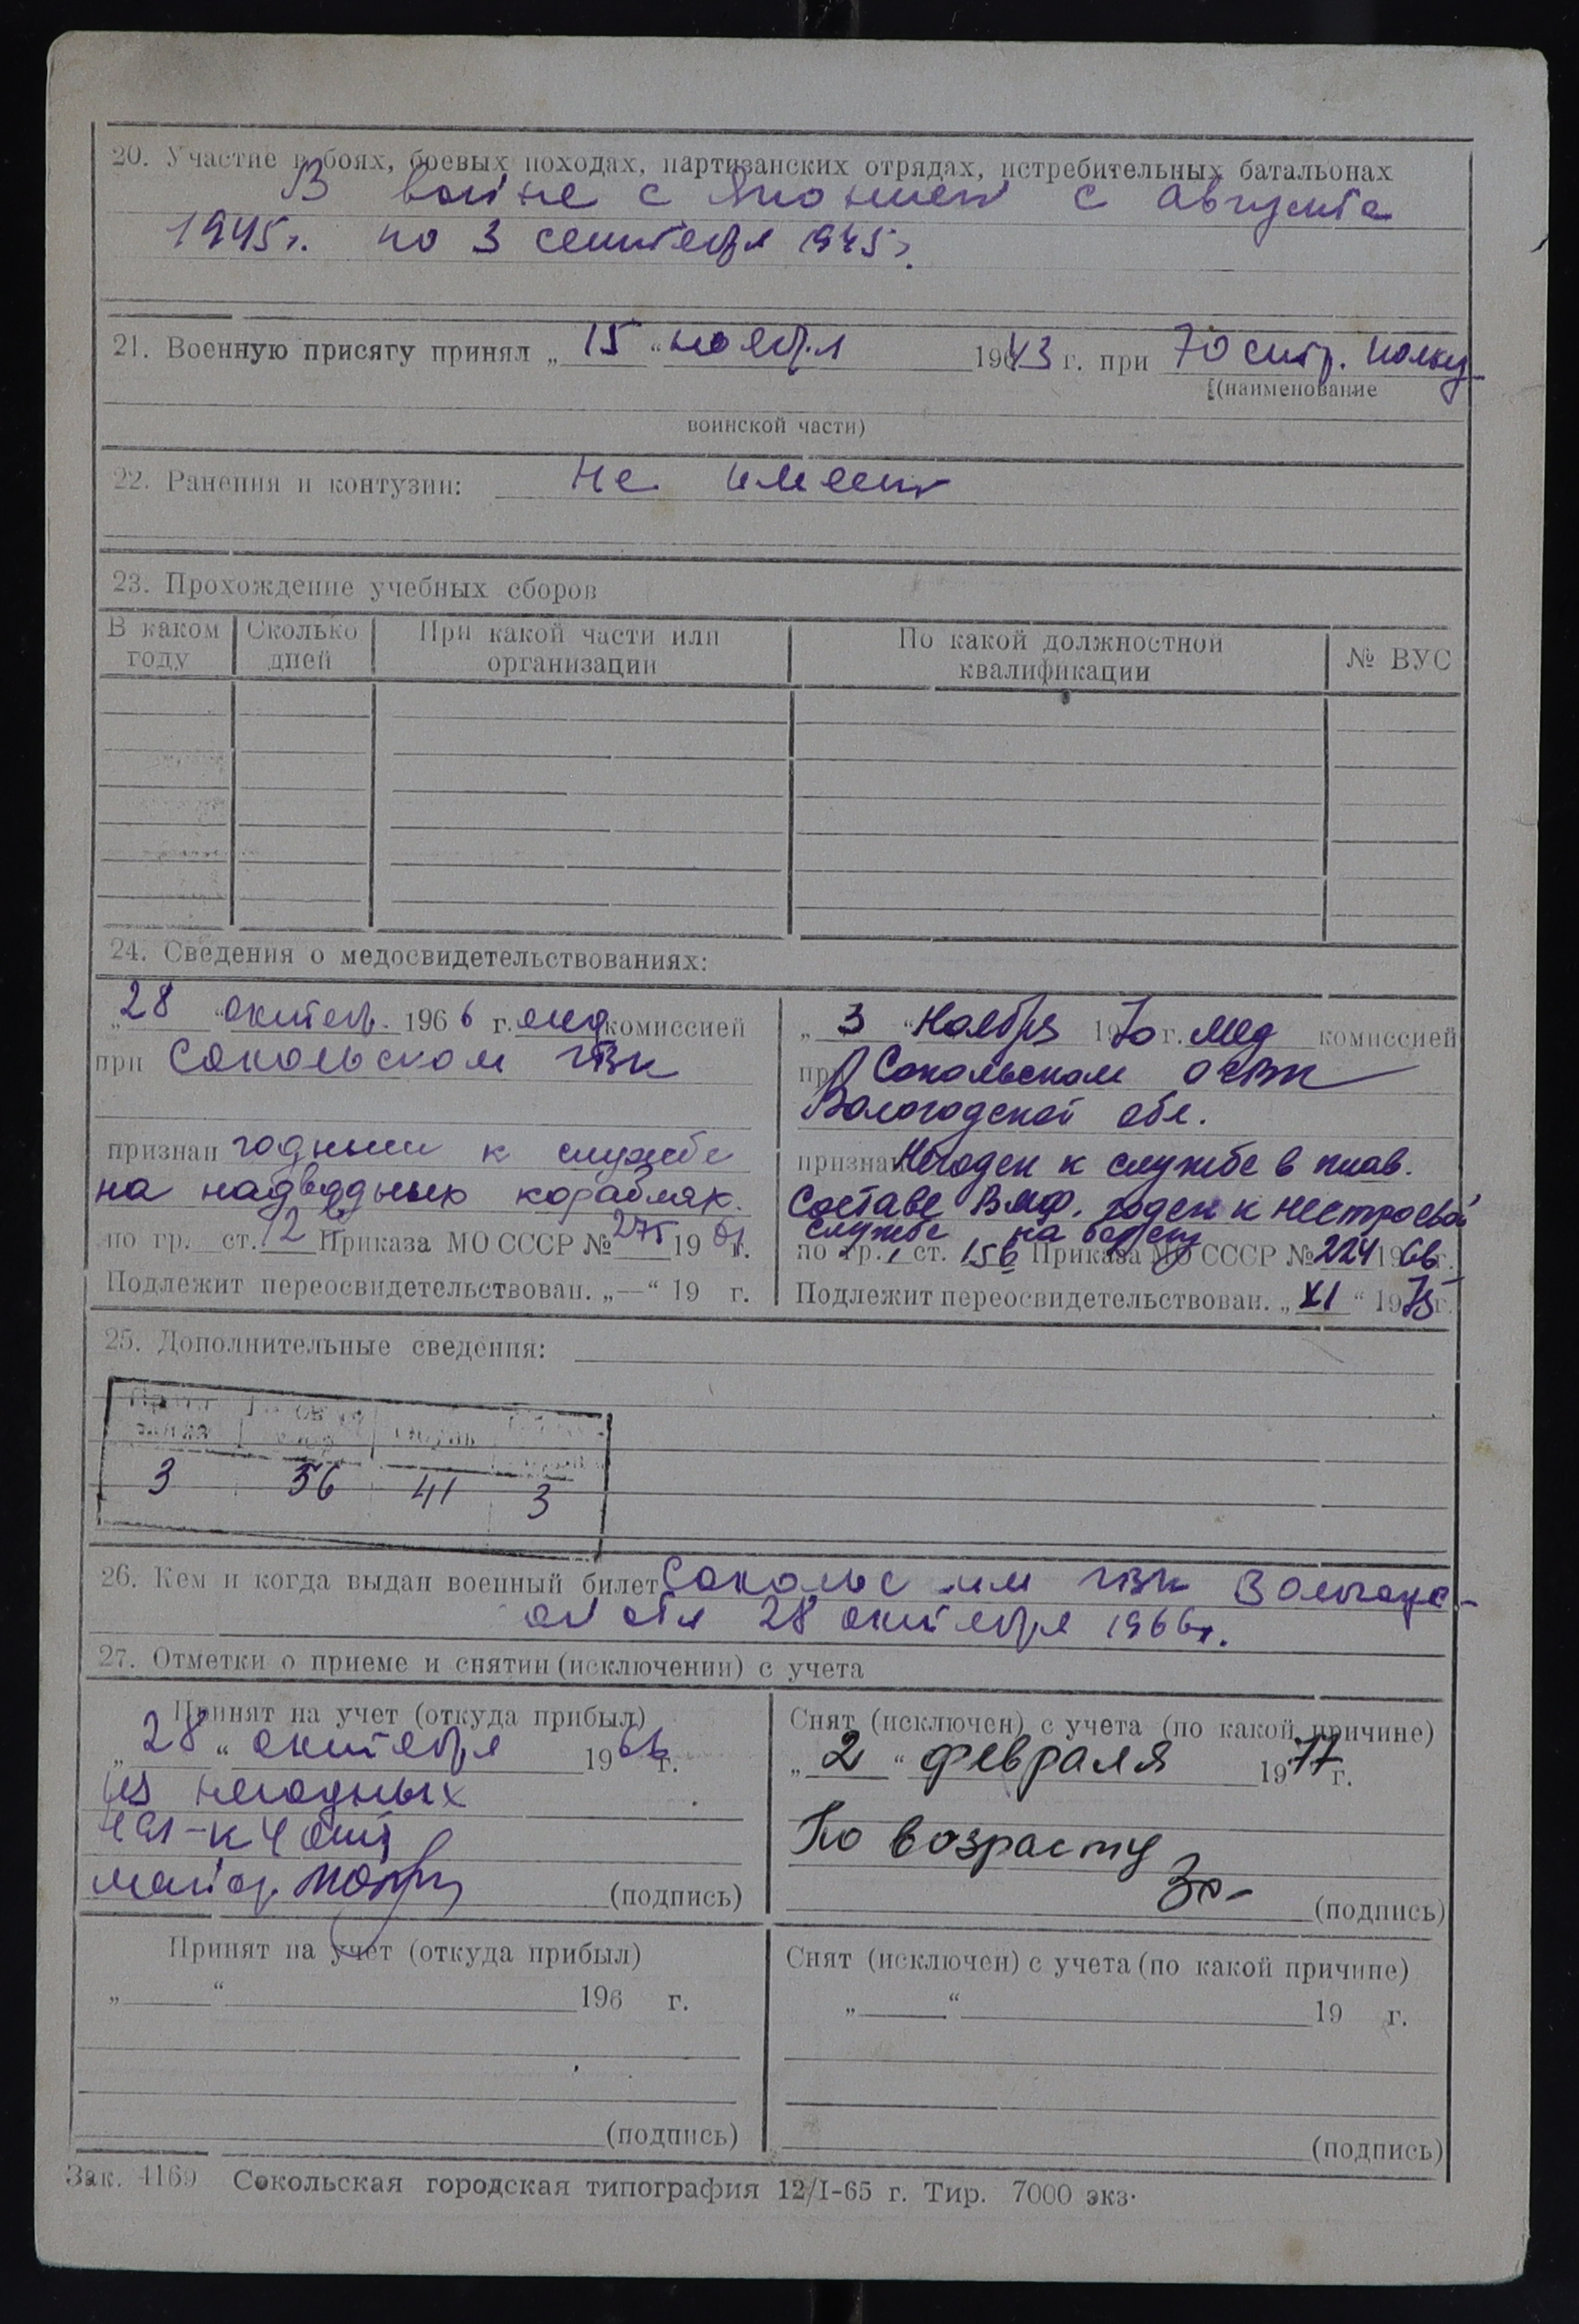 20. Участие в боях, боевых походах, партизанских отрядах, истребительных батальонах
В войне с Японией с августа
1945г. по 3 сентября 1945г.
21. Военную присягу принял „ 15 “ ноября 1943 г. при 70 стр. полку
(наименование
воинской части)
22. Ранения и контузии: не имеет
23. Прохождение учебных сборов
В каком году Сколько дней При какой части или организации По какой должностной квалификации № ВУС
24. Сведения о медосвидетельствованиях:
„ 28 “ октябр. 1966 г. мед комиссией
при Сокольском ГВК
признан годным к службе
на надводных кораблях.
по гр. ст. 12в Приказа МО СССР № 275 1961 г.
Подлежит переосвидетельствован. „—“ 19 г.
„ 3 “ Ноября 1970 г. мед комиссией
при Сокольском ОГВК
Вологодской обл.
признан Негоден к службе в плав.
составе ВМФ. годен к нестроевой
службе на берегу
по гр. 1 ст. 15б Приказа МО СССР № 224 1966 г.
Подлежит переосвидетельствован. „ XI “ 1975 г.
25. Дополнительные сведения:
3 56 41 3
26. Кем и когда выдан военный билет Сокольским ГВК Вологодс-
ой обл 28 октября 1966г.
27. Отметки о приеме и снятии (исключении) с учета
Принят на учет (откуда прибыл)
„ 28 “ октября 1966 г.
из негодных
нач-к 4 отд
майор (подпись)
Снят (исключен) с учета (по какой причине)
„ 2 “ февраля 1977 г.
По возрасту
(подпись)
Принят на учет (откуда прибыл)
„ “ 196 г.
(подпись)
Снят (исключен) с учета (по какой причине)
„ “ 19 г.
(подпись)
Зак. 4169 Сокольская городская типография 12/I-65 г. Тир. 7000 экз.